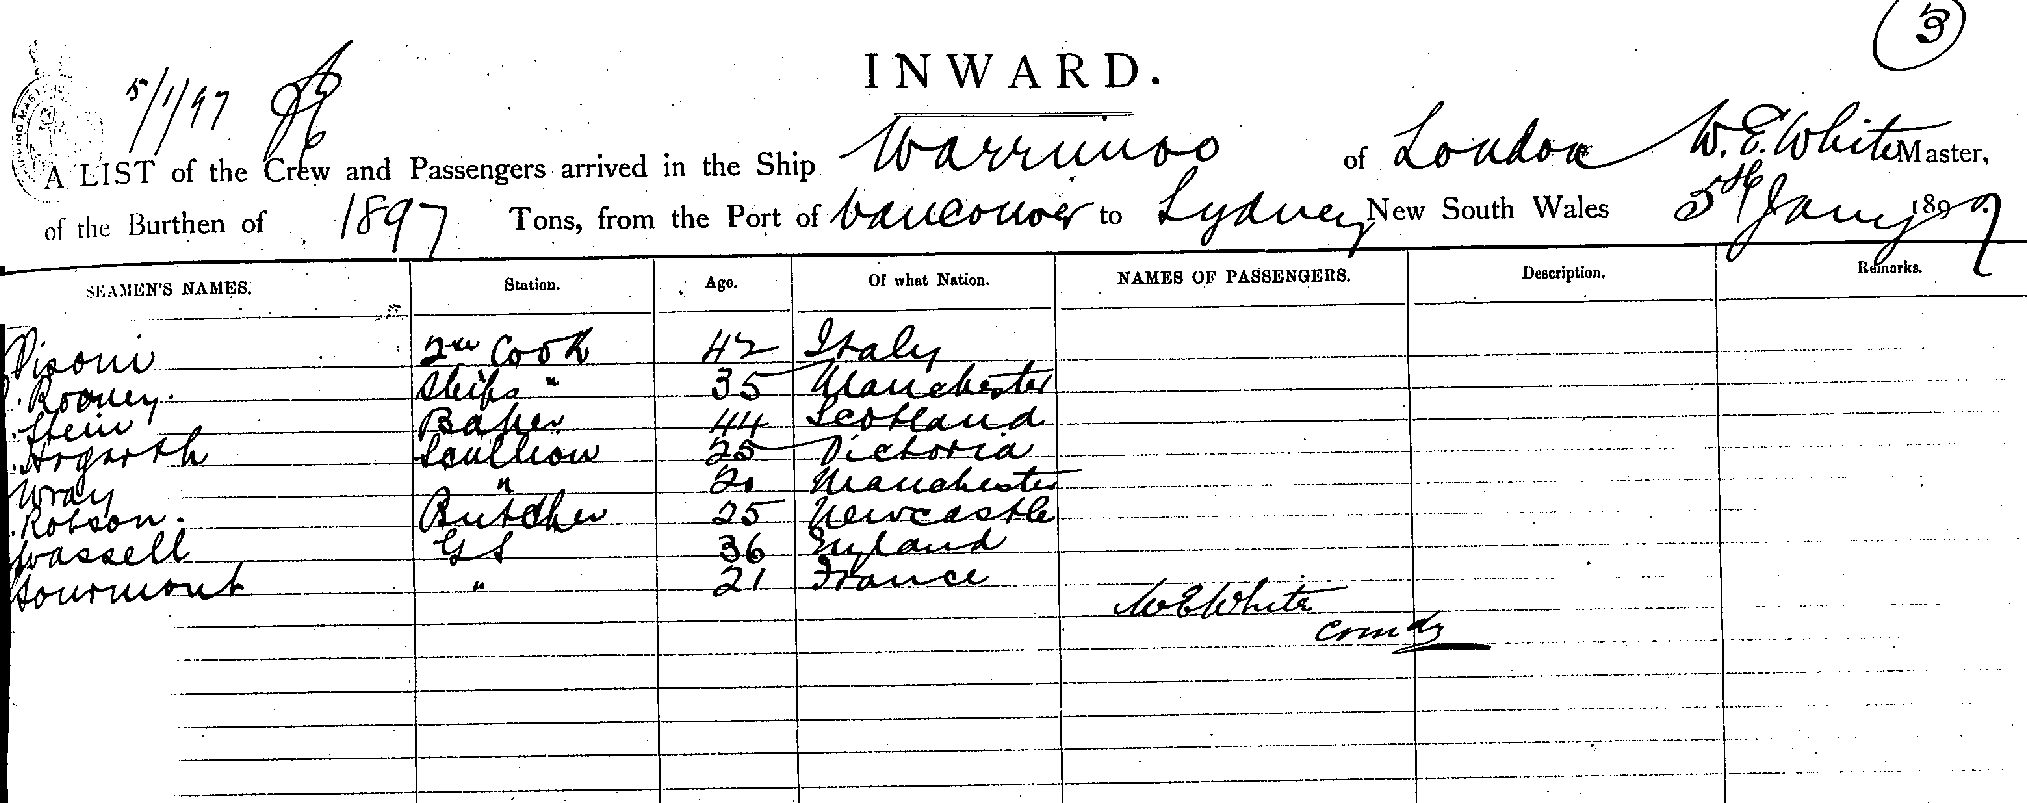 3
5/1/97
INWARD.
A LIST of the Crew and Passengers arrived in the Ship Warrimoo of London W. E. White Master,
of the Burthen of 1897 Tons, from the Port of Vancouver to Sydney New South Wales 5th Jany 1897
SEAMEN'S NAMES. Station. Age. Of what Nation. NAMES OF PASSENGERS. Description. Remarks.
Visoni 2nd Cook 42 Italy
Rooney. Ships " 35 Manchester
Stein Baker 44 Scotland
Hogarth Scullion 25 Victoria
Wray " 20 Manchester
Robson. Butcher 25 Newcastle
Wassell G S 36 England
" 21 France
W E White
Comdr